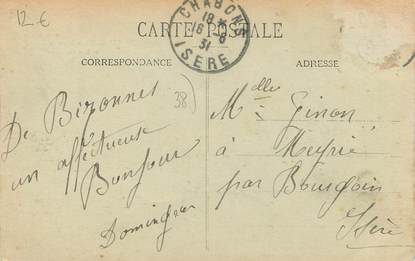 12 €
CHABONS
18 *
16 - 8
31
ISERE
CARTE POSTALE
CORRESPONDANCE
ADRESSE
38)
De Bizonnes
un affectueuse
Bonjour
Melle Ginon
à Meyrié
par Bourgoin
Isère